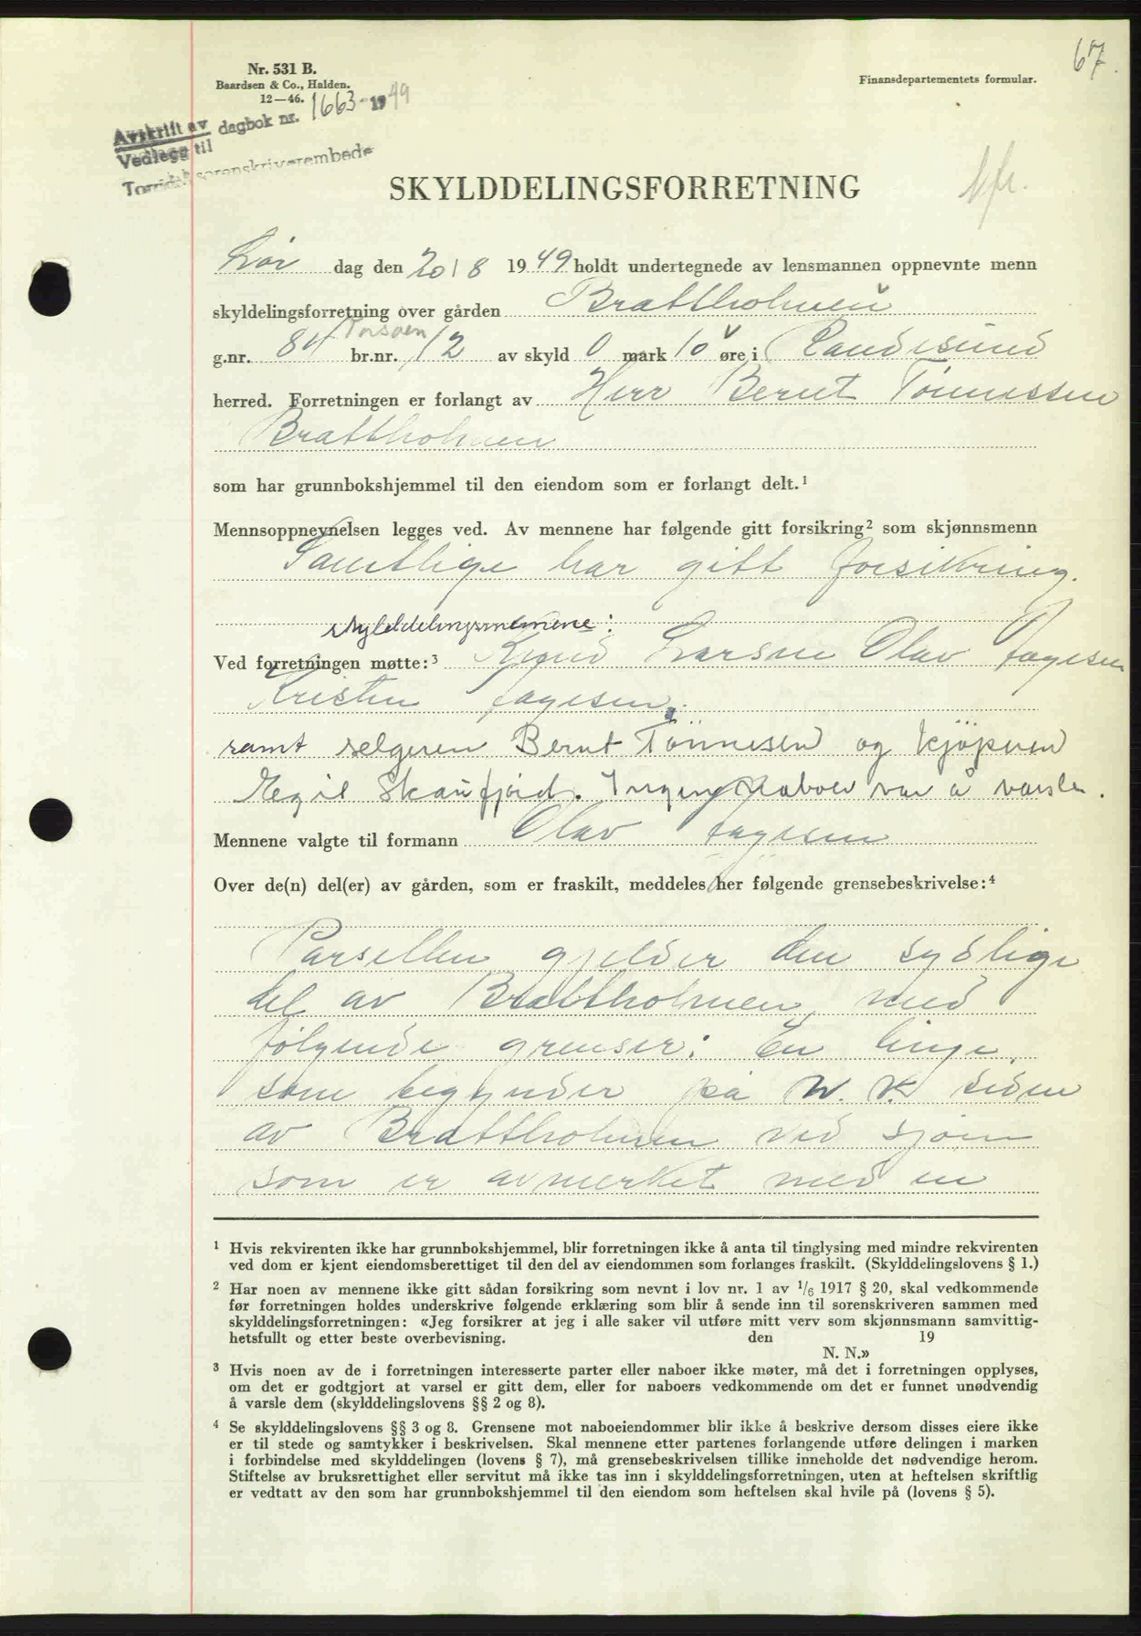 67.
Nr. 531 B.
Baardsen & Co., Halden.
12—46.
Finansdepartementets formular.
Avskrift av dagbok nr. 1663-1949
Vedlegg til
Torridal sorenskriverembede
SKYLDDELINGSFORRETNING
Lør dag den 20/8 1949 holdt undertegnede av lensmannen oppnevnte menn
skyldelingsforretning over gården Brattholmen
g.nr. 84 br.nr. 12 av skyld 0 mark 10 øre i Randesund
herred. Forretningen er forlangt av Herr Bernt Tønnessen
Brattholmen
som har grunnbokshjemmel til den eiendom som er forlangt delt.¹
Mennsoppnevnelsen legges ved. Av mennene har følgende gitt forsikring² som skjønnsmenn
Samtlige har gitt forsikring.
skylddelingsmennene:
Ved forretningen møtte:³ Larsen Olav Fagesen
Kristen Fagesen
samt selgeren Bernt Tönnesen og kjöperen
Egil Skaufjord. Ingen Naboer var å varsle.
Mennene valgte til formann Olav Fagesen
Over de(n) del(er) av gården, som er fraskilt, meddeles her følgende grensebeskrivelse:⁴
Parsellen gjelder den sydlige
del av Brattholmen, med
følgende grenser: En linje,
som begynder på N. V. siden
av Brattholmen ved sjøen
som er avmerket med en
¹ Hvis rekvirenten ikke har grunnbokshjemmel, blir forretningen ikke å anta til tinglysing med mindre rekvirenten
ved dom er kjent eiendomsberettiget til den del av eiendommen som forlanges fraskilt. (Skylddelingslovens § 1.)
² Har noen av mennene ikke gitt sådan forsikring som nevnt i lov nr. 1 av 1/6 1917 § 20, skal vedkommende
før forretningen holdes underskrive følgende erklæring som blir å sende inn til sorenskriveren sammen med
skylddelingsforretningen: «Jeg forsikrer at jeg i alle saker vil utføre mitt verv som skjønnsmann samvittig-
hetsfullt og etter beste overbevisning. den 19
N. N.»
³ Hvis noen av de i forretningen interesserte parter eller naboer ikke møter, må det i forretningen opplyses,
om det er godtgjort at varsel er gitt dem, eller for naboers vedkommende om det er funnet unødvendig
å varsle dem (skylddelingslovens §§ 2 og 8).
⁴ Se skylddelingslovens §§ 3 og 8. Grensene mot naboeiendommer blir ikke å beskrive dersom disses eiere ikke
er til stede og samtykker i beskrivelsen. Skal mennene etter partenes forlangende utføre delingen i marken
i forbindelse med skylddelingen (lovens § 7), må grensebeskrivelsen tillike inneholde det nødvendige herom.
Stiftelse av bruksrettighet eller servitut må ikke tas inn i skylddelingsforretningen, uten at heftelsen skriftlig
er vedtatt av den som har grunnbokshjemmel til den eiendom som heftelsen skal hvile på (lovens § 5).